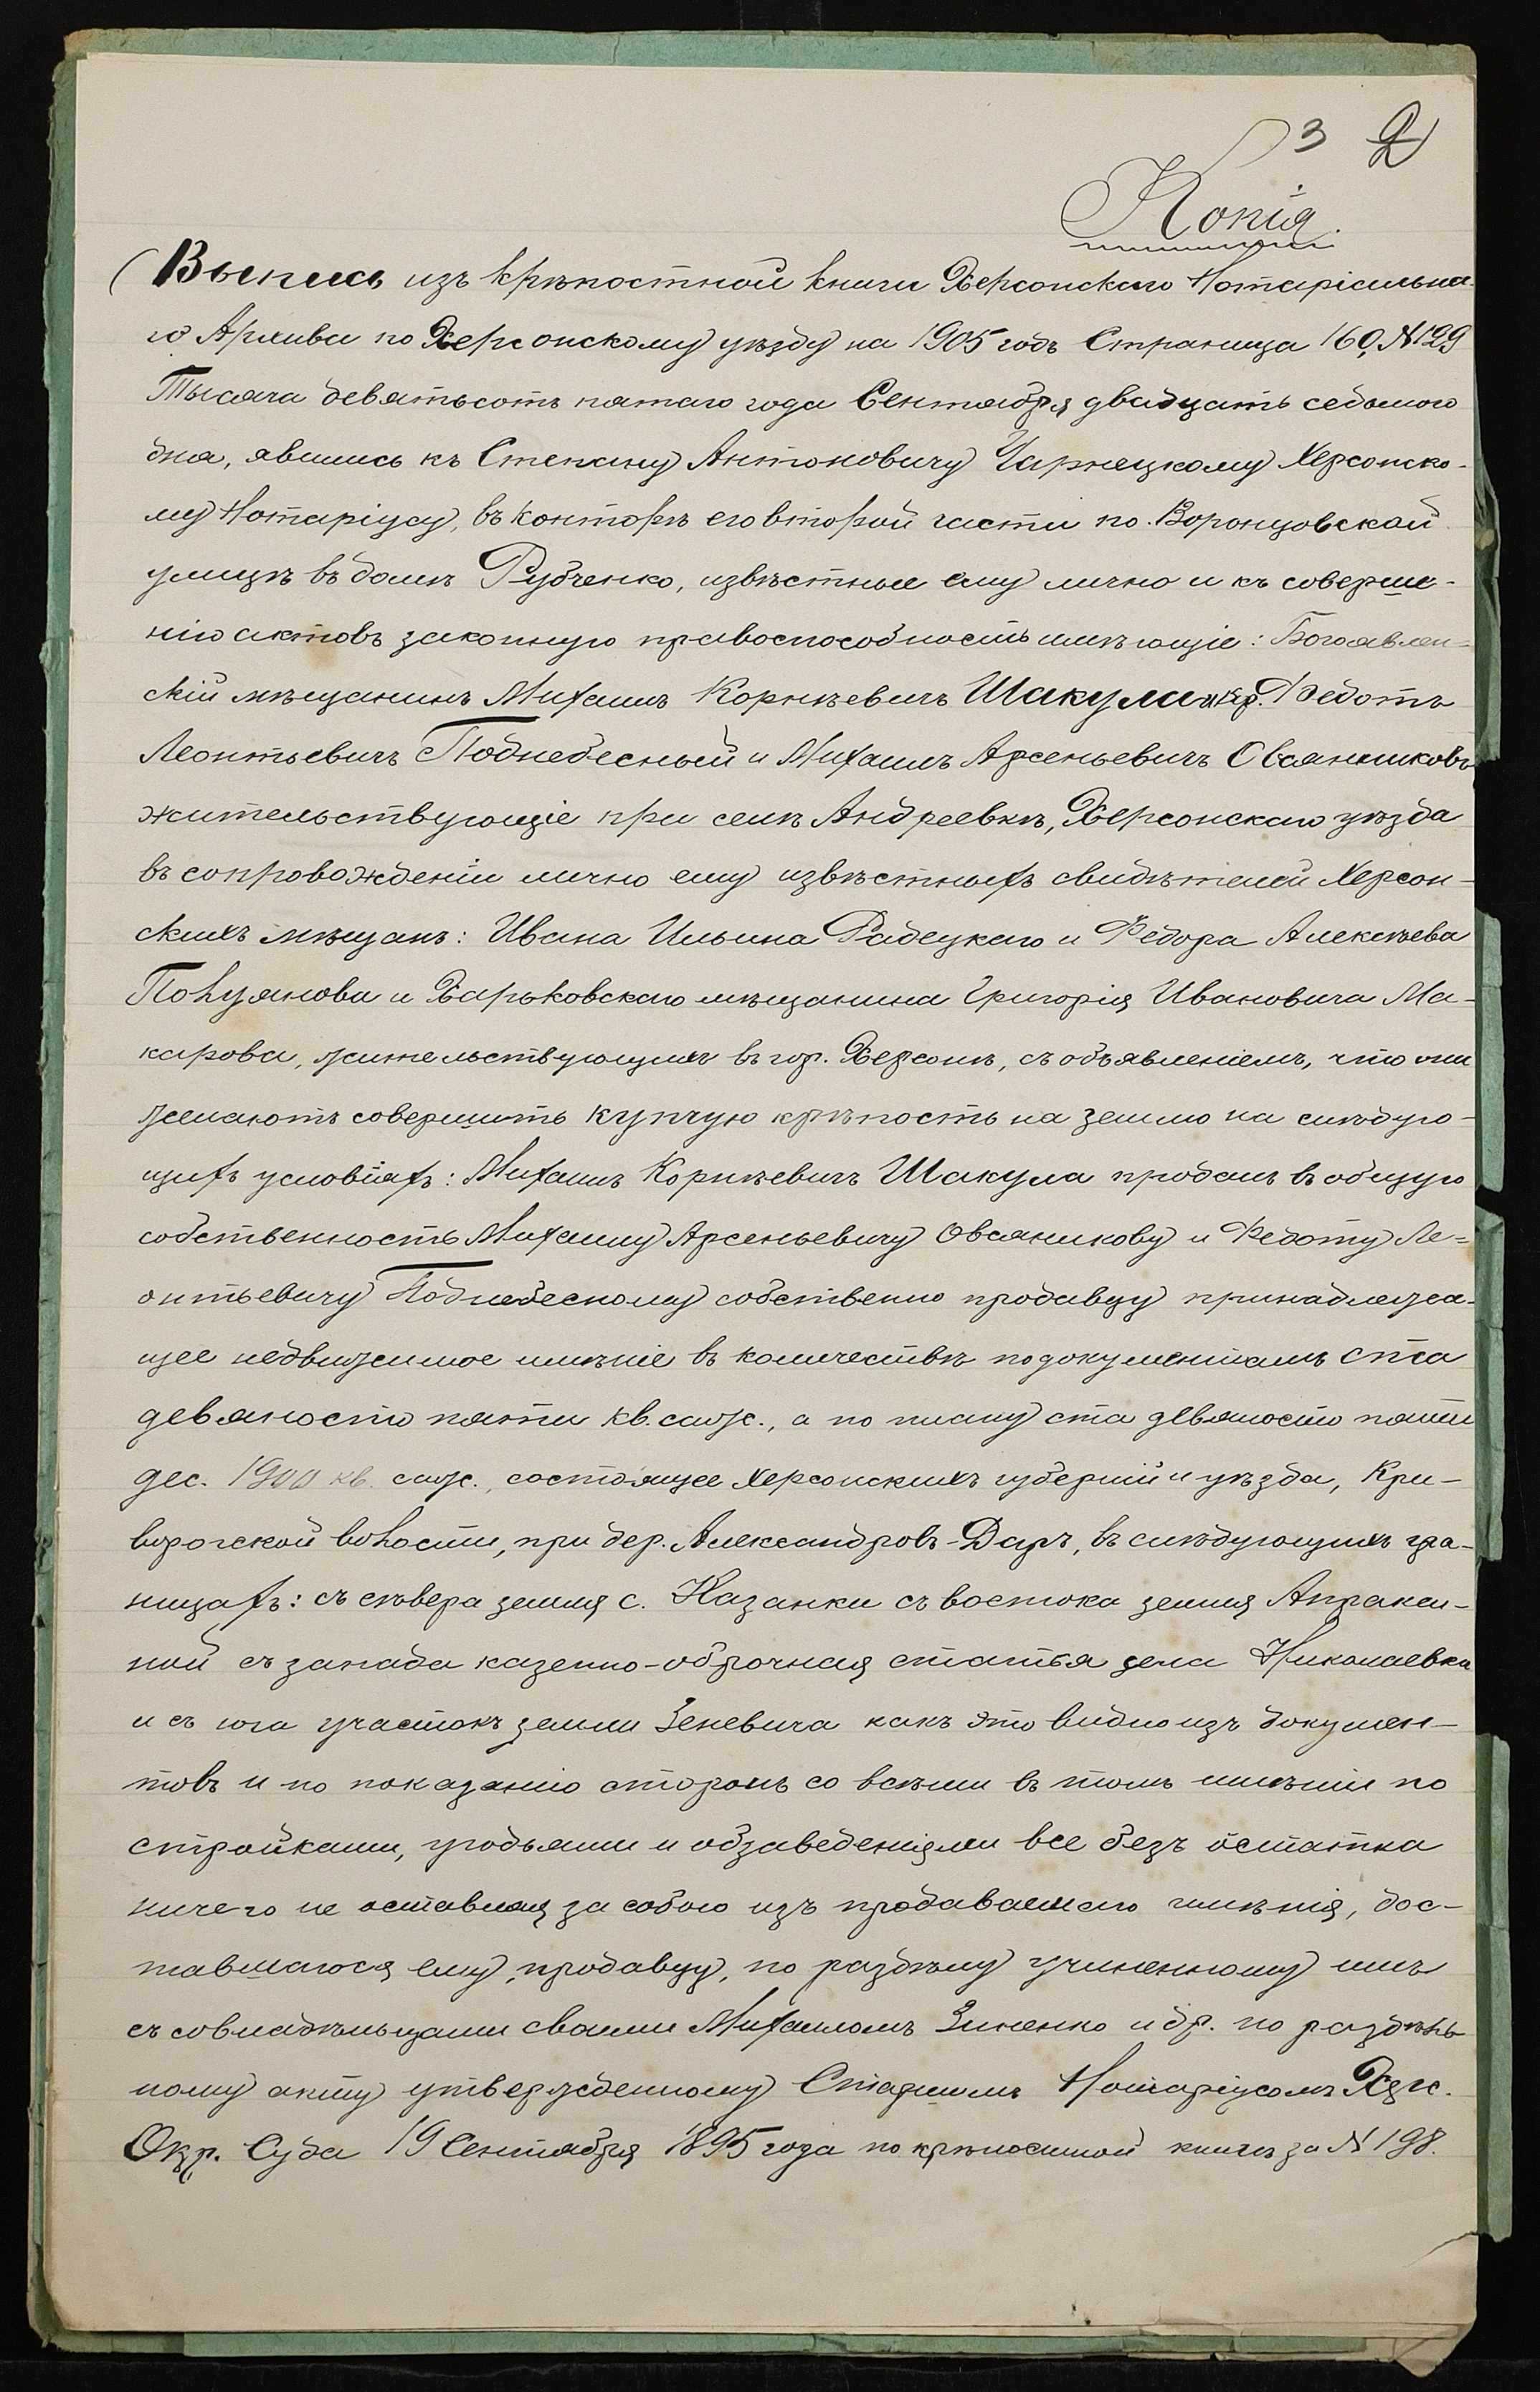 3 2
Копія.
Выпись изъ крѣпостной книги Херсонскаго Нотаріальна-
го Архива по Херсонскому уѣзду на 1905 годъ Страница 160, № 129
Тысяча девятьсотъ пятаго года Сентября двадцать седьмого
дня, явились къ Степану Антоновичу Чарнецкому Херсонско-
му Нотаріусу, въ конторѣ его второй части по Воронцовской
улицѣ въ домѣ Рубченко, извѣстные ему лично и къ соверше-
нію актовъ законную правоспособность имѣющіе: Богоявлен-
скій мѣщанинъ Михаилъ Корнѣевичъ Шакула и кр. Федотъ
Леонтьевичъ Поднебесный и Михаилъ Арсеньевичъ Овсянниковъ
жительствующіе при селѣ Андреевкѣ, Херсонскаго уѣзда
въ сопровожденіи лично ему извѣстныхъ свидѣтелей Херсон-
скихъ мѣщанъ: Ивана Ильина Радецкаго и Федора Алексѣева
Полуянова и Харьковскаго мѣщанина Григорія Ивановича Ма-
карова, жительствующихъ въ гор. Херсонѣ, съ объявленіемъ, что они
желаютъ совершить купчую крѣпость на землю на слѣдую-
щихъ условіяхъ: Михаилъ Корнѣевичъ Шакула продалъ въ общую
собственность Михаилу Арсеньевичу Овсяникову и Федоту Ле-
онтьевичу Поднебесному собственно продавцу принадлежа-
щее недвижимое имѣніе въ количествѣ по документамъ ста
девяносто пяти кв. саж., а по плану ста девяносто пяти
дес. 1900 кв. саж., состоящее Херсонскихъ губерніи и уѣзда, Кри-
ворогской волости, при дер. Александровъ-Даръ, въ слѣдующихъ гра-
ницахъ: съ сѣвера земля с. Казанки съ востока земля Апракси-
ной съ запада казенно-оброчная статья села Николаевка
и съ юга участокъ земли Зеневича какъ это видно изъ докумен-
товъ и по показанію сторонъ со всѣми въ томъ имѣніи по
стройками, угодьями и обзаведеніями все безъ остатка
ничего не оставляя за собою изъ продаваемаго имѣнія, дос-
тавшагося ему, продавцу, по раздѣлу учиненному имъ
съ совладѣльцами своими Михаиломъ Зиненко и др. по раздѣль
ному акту утвержденному Старшимъ Нотаріусомъ Херс.
Окр. Суда 19 Сентября 1895 года по крѣпостной книгѣ за № 198.